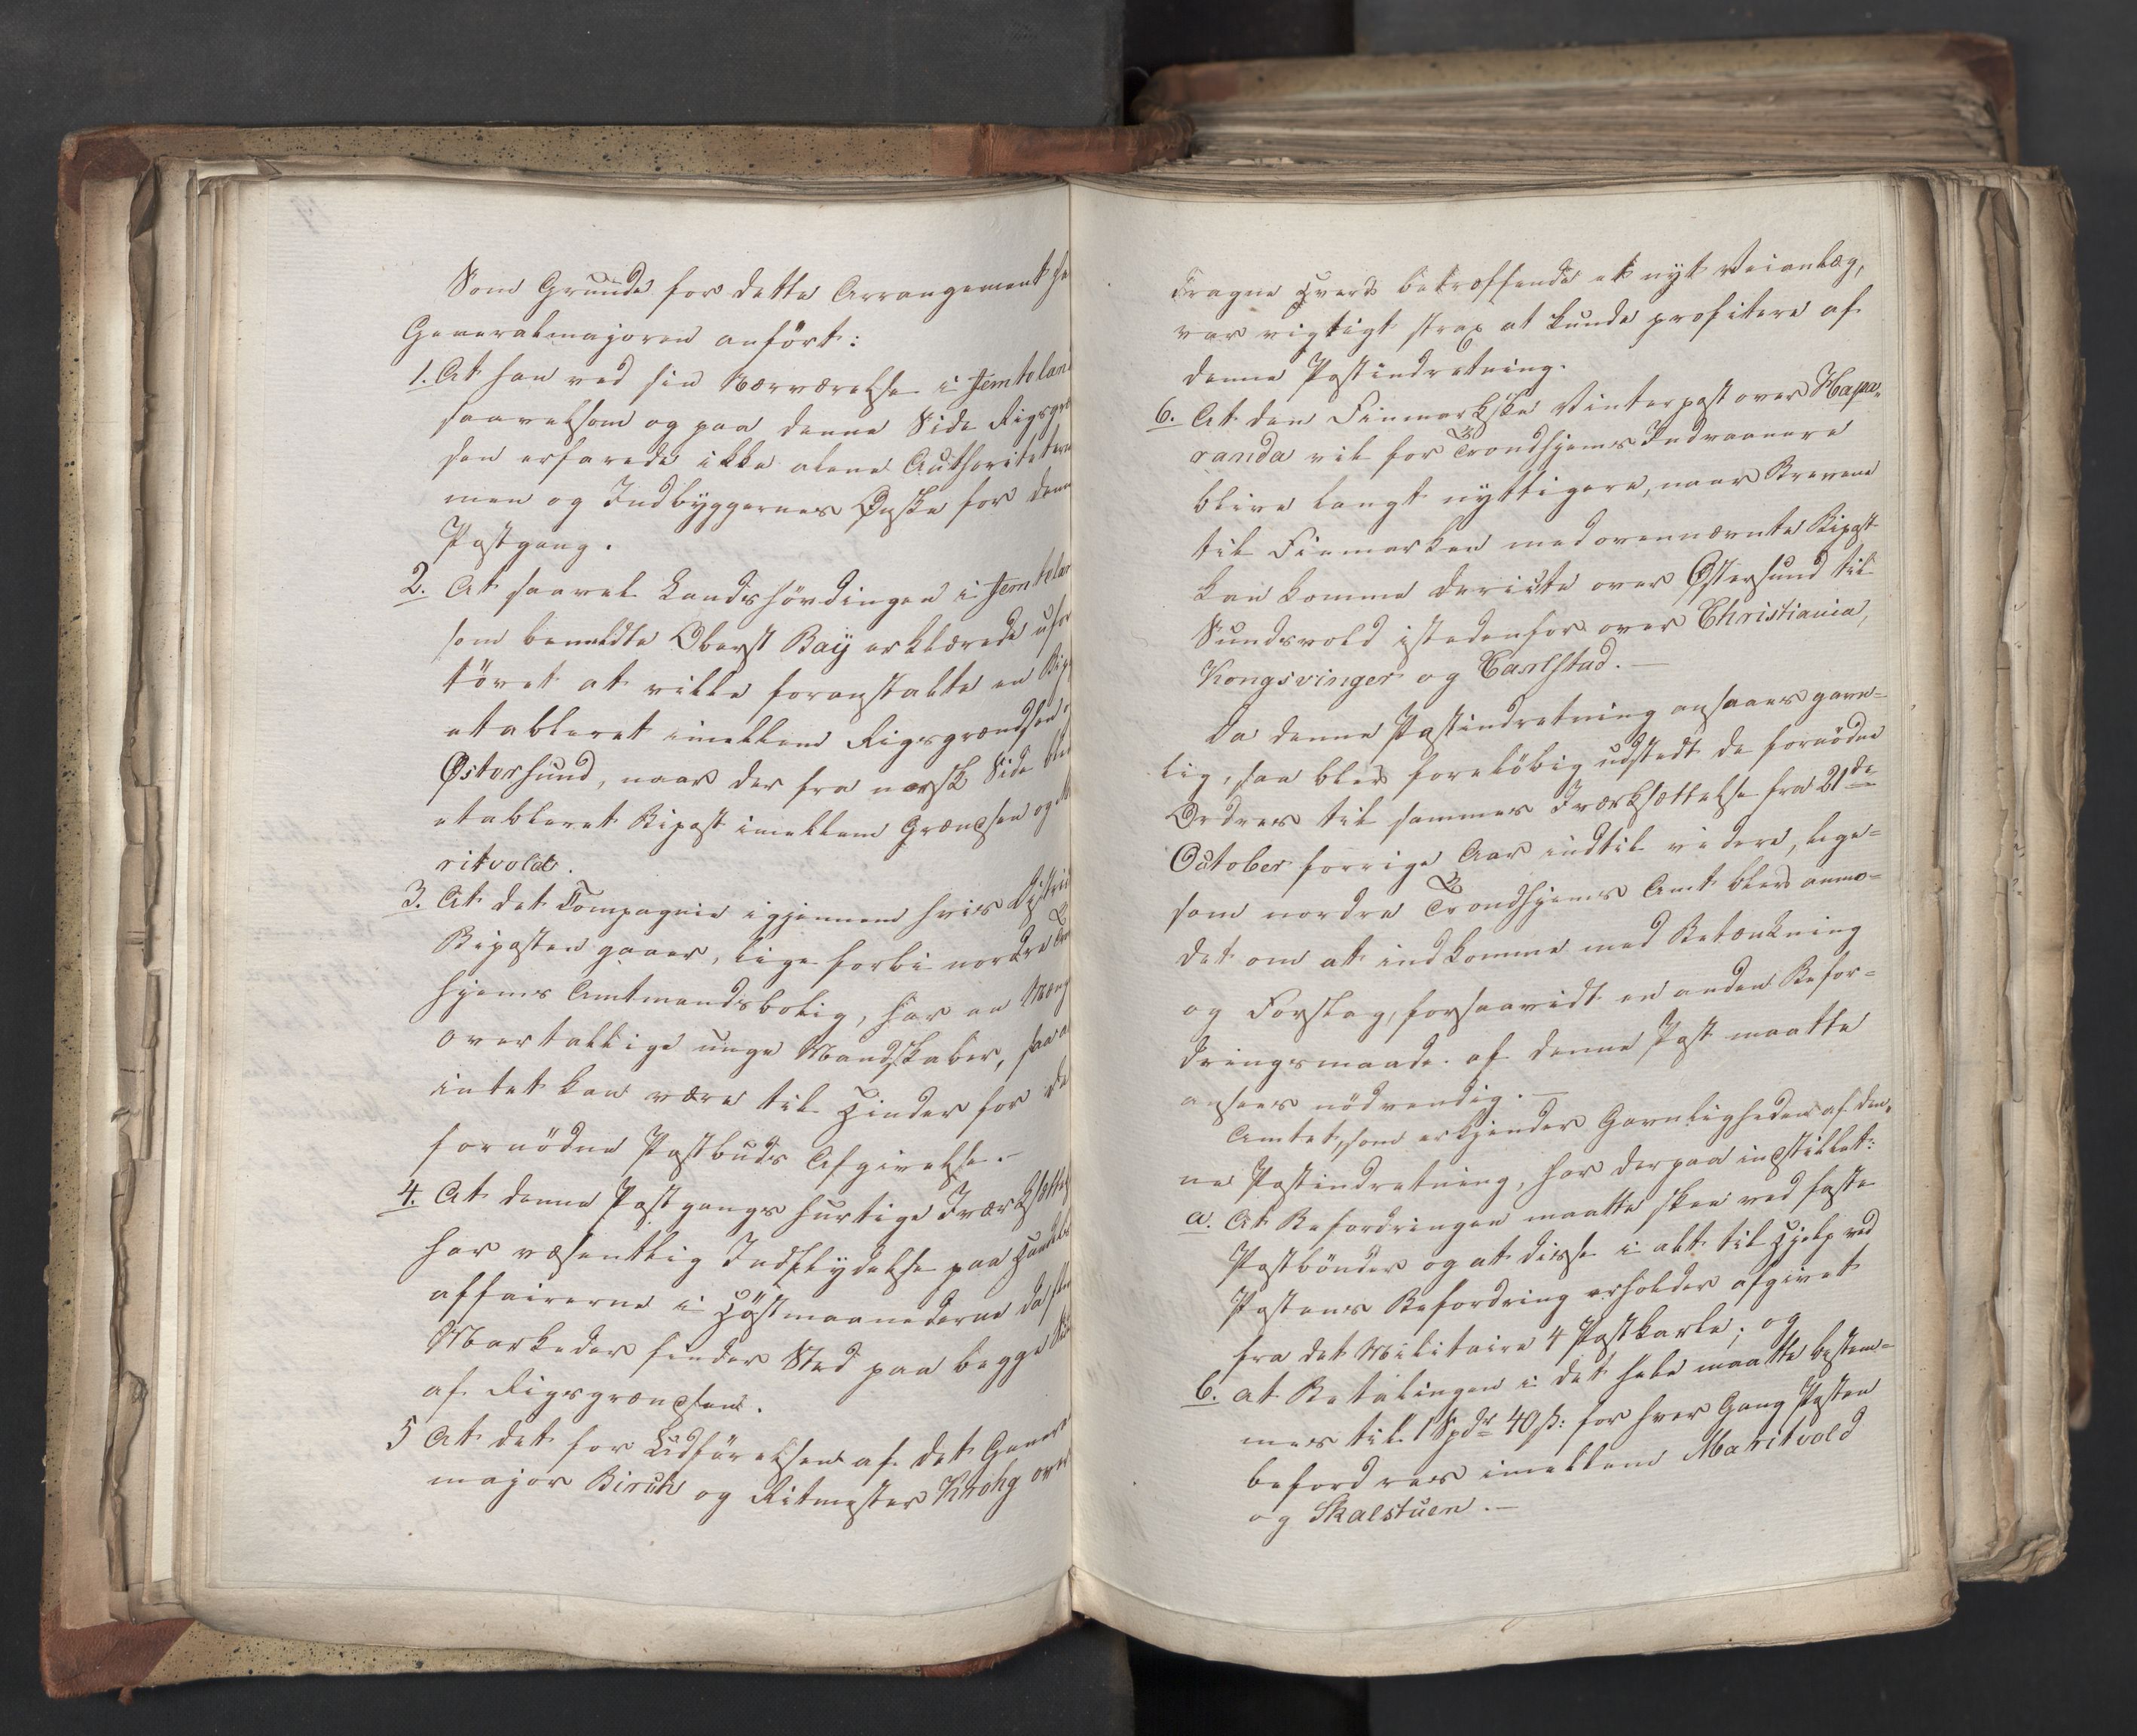 Som Grunde for dette Arrangement ha
Generalmajoren anført:
1. At han ved sin Nærværelse i Jemtelan
saavelsom og paa denne Side Rigsgræ
sen erfarede ikke alene Authoriteterne
men og Indbyggernes Ønske for denn
Postgang.
2. At saavel Landshövdingen i Jemtelan
som bemeldte Oberst Baÿ erklærede ufor
tövet at ville foranstalte en Bip
etableret imellem Rigsgrændsen
Östersund, naar der fra norsk Side blev
etableret Bipost imellem Grændsen og Ma
ritvold.
3. At det Compagnie igjennem hvis District
Biposten gaaer, lige forbi nordre Tron
hjems Amtmandsbolig, har en Meng
overtallige unge Mandskaber, saa a
intet kan være til Hinder for de
fornödne Postbuds Afgivelse.-
4. At denne Postgangs hurtige Iværksættel
har væsentlig Indflydelse paa Handels
affairerne i Höstmaanederne da fle
Markeder finder Sted paa begge Sid
af Rigsgrændsen.
5 At det for Udförelsen af det General
major Birch og Ritmester Krohg over
dragne Hverv betræffende et nÿt Veianlæg,
var vigtigt strax at kunde profitere af
denne Postindretning.
6. At den Finmarkske Vinterpost over Hapa-
randa vil for Trondhjems Indvaanere
blive langt nyttigere, naar Brevene
til Finmarken med ovennævnte Bipost
kan komme directe over Østersund til
Sundsvold istedenfor over Christiania,
Kongsvinger og Carlstad.—
Da denne Postindretning ansaaes gavn=
lig, saa blev forelöbig udstedt de fornödne
Ordres til sammes Iværksættelse fra 21de
October forrige Aar indtil videre, lige=
som nordre Trondhjems Amt blev anmo=
det om at indkomme med Betænkning
og Forslag, forsaavidt en anden Befor=
dringsmaade af denne Post maatte
ansees nödvendig.—
Amtet, som erkjender Gavnligheden af den-
ne Postindretning, har derpaa indstillet:
a. At Befordringen maatte skee ved faste
Postbönder og at disse i alt til Hjelp ved
Postens Befordring erholder afgivet
fra det Militaire 4 Postkarle; og
b. at Betalingen i det hele maatte bestem=
mes til 1 Spdr 40 ß: for hver Gang Posten
befordres imellem Maritvold
og Skalstuen.—